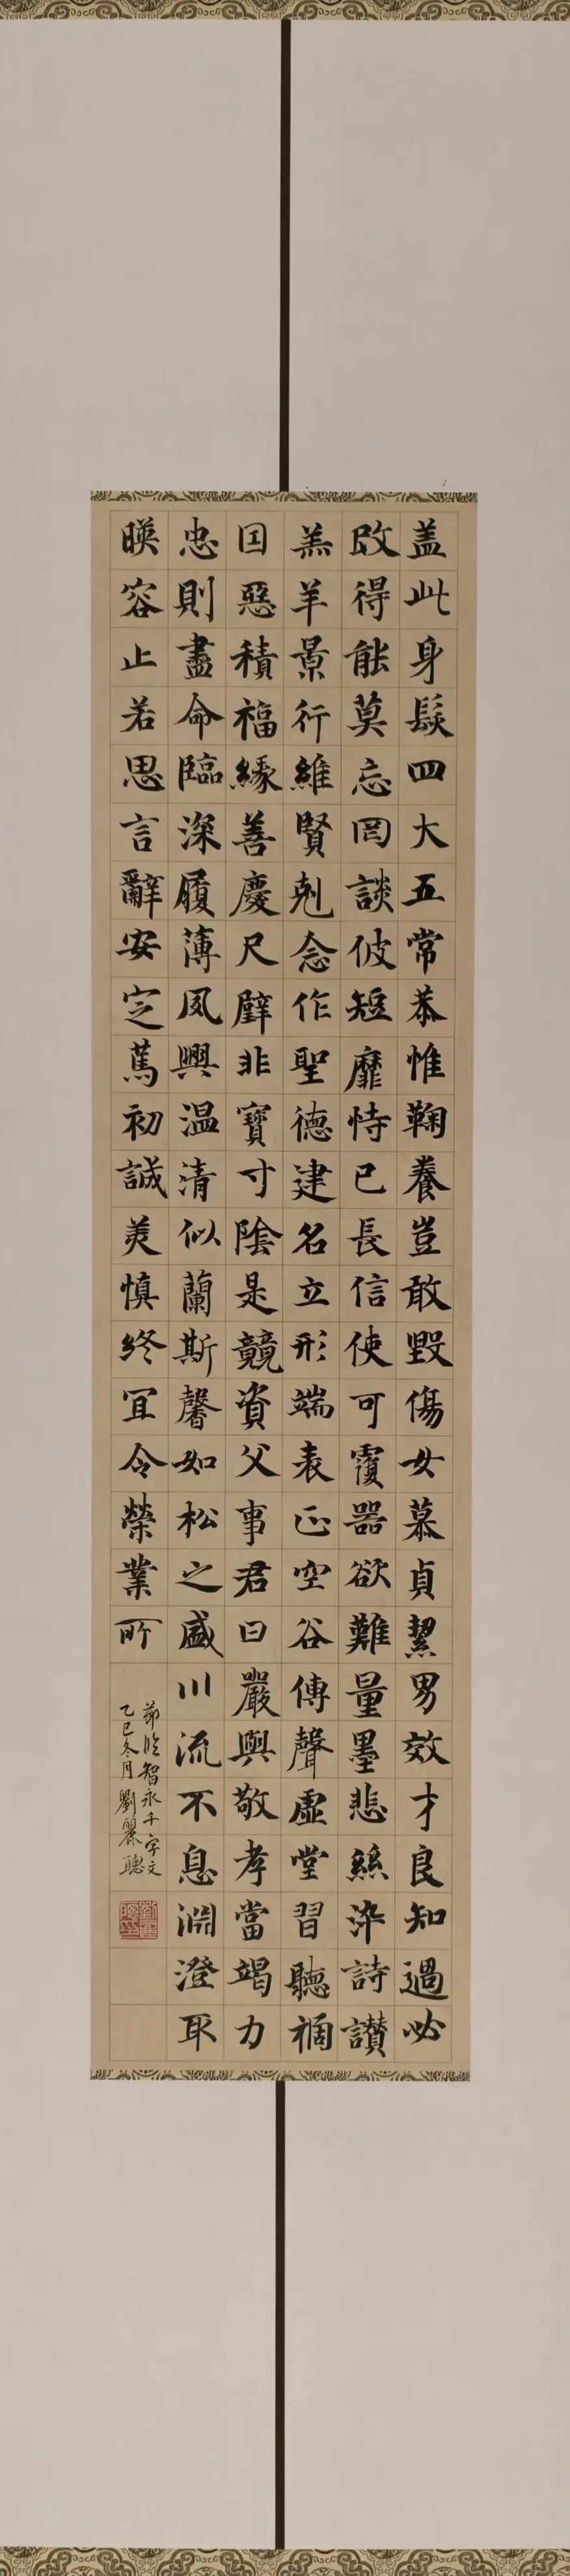 盖此身髮四大五常恭惟鞠養豈敢毀傷女慕貞絜男效才良知過必
改得能莫忘罔談彼短靡恃己長信使可覆器欲難量墨悲絲染詩讃
羔羊景行維賢剋念作聖德建名立形端表正空谷傳聲虛堂習聽禍
因惡積福緣善慶尺璧非寶寸陰是競資父事君曰嚴與敬孝當竭力
忠則盡命臨深履薄夙興温凊似蘭斯馨如松之盛川流不息淵澄取
暎容止若思言辭安定篤初誠美慎終宜令榮業所
節臨智永千字文
乙巳冬月劉麗聰